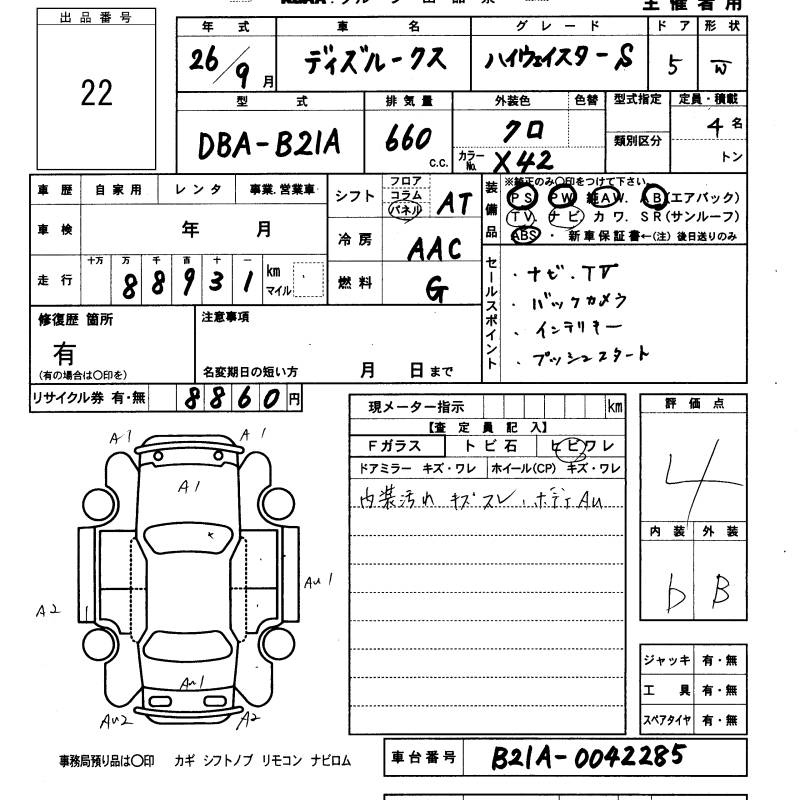 主催者用
出品番号
22
年式 車名 グレード ドア 形状
26/9月 ディズルークス ハイウェイスターS 5 W
型式 排気量 外装色 色替 型式指定 定員・積載
DBA-B21A 660 c.c. クロ 類別区分 4名
カラーNo. X42 トン
車歴 自家用 レンタ 事業.営業車
シフト フロア コラム パネル AT
装備品 ※純正のみ○印をつけて下さい。
PS PW 純AW. AB(エアバック)
TV. ナビ カワ. SR(サンルーフ)
ABS・ 新車保証書←(注) 後日送りのみ
車検 年 月
冷房 AAC
走行 十万 万 千 百 十 一
88931 km マイル
燃料 G
セールスポイント
・ナビ.TV
・バックカメラ
・インテリキー
・プッシュスタート
修復歴 箇所
有
(有の場合は○印を)
注意事項
名変期日の短い方 月 日まで
リサイクル券 有・無 8860円
現メーター指示 km
【査定員記入】
Fガラス トビ石 ヒビワレ
ドアミラー キズ・ワレ ホイール(CP) キズ・ワレ
内装汚れ キズスレ.ボディAU
評価点
4
内装 外装
b B
A1 A1
A1
AU1
A2 1
AU1
AU2 A2
ジャッキ 有・無
工具 有・無
スペアタイヤ 有・無
事務局預り品は○印 カギ シフトノブ リモコン ナビロム
車台番号 B21A-0042285